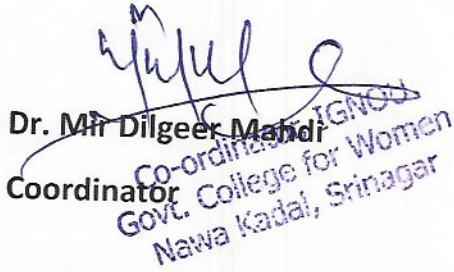 Dr. Mir Dilgeer Mahdi
Coordinator
Co-ordinator IGNOU
Govt. College for Women
Nawa Kadal, Srinagar